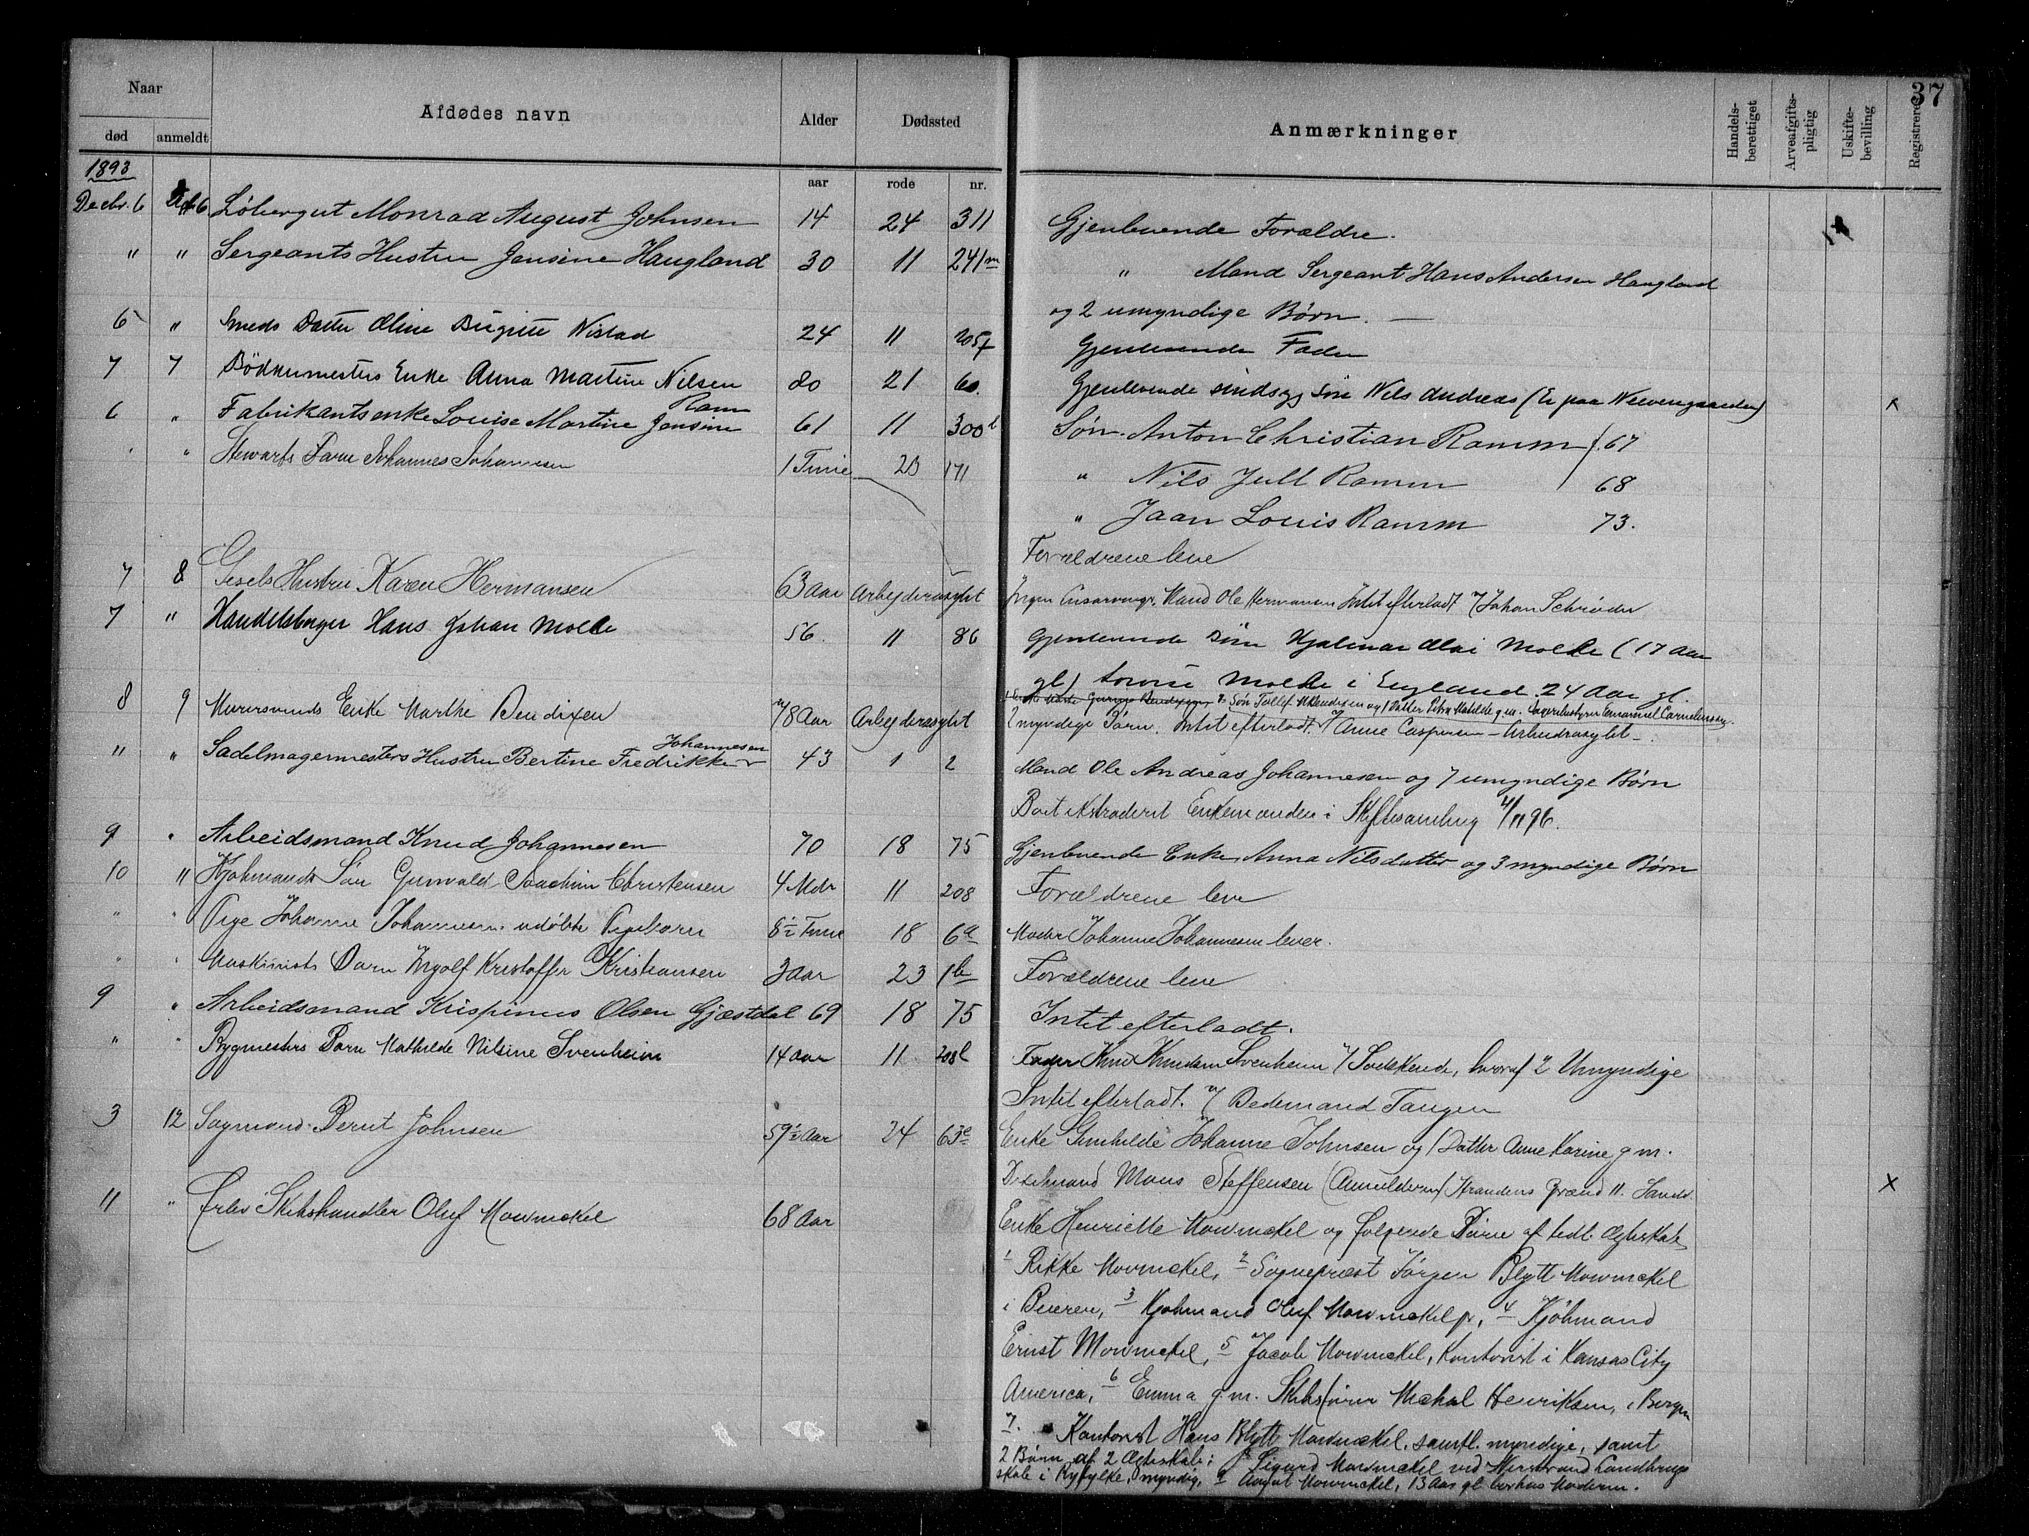 37
Naar
Afdødes navn
Alder
Dødssted
Anmærkninger
Handels-berettiget
Arveafgifts-pligtig
Uskifte-bevilling
Registreret
død anmeldt
1893
aar rode nr.
Decbr. 6 6 Løbergut Monrad August Johnsen 14 24 311 Gjenlevende Forældre.
" " Sergeants Hustru Jensine Haugland 30 11 241m " Mand Sergeant Hans Andersen Haugland
og 2 umyndige Børn. —
6 " Smeds Datter Oline Birgitte Nistad 24 11 205f Gjenlevende Fader
7 7 Bødkermesters Enke Anna Martine Nilsen 80 21 60. Gjenlevende sindsyg Søn Nils Andreas (Er paa Nevengaarden) x
6 " Fabrikantsenke Louise Martine Jensine Ramm 61 11 300 Søn. Anton Christian Ramm f. 67
" " Stewarts Barn Johannes Johannesen 1 Time 23 171 " Nils Jull Ramm 68
" Jaan Louis Ramm 73.
Forældrene leve
7 8 Gesels Hustru Karen Hermansen 63 Aar Arbejderasylet Ingen Livsarvinger. Mand Ole Hermansen Intet efterladt Johan Schrøder
7 " Handelsborger Hans Johan Molde 56. 11 86 Gjenlevende Søn Hjalmar Olai Molde (17 Aar
gl) Lovise Molde i England. 24 Aar gl.
8 9 Murersvends Enke Marthe Bendixen 78 Aar Arbejderasylet Søn Tollef Bendixen og 1 Datter Petra Matilde g.m. Emanuel Corneliussen.
2 myndige Børn. Intet efterladt. Anne Caspersen – Arbeidrasylet –
" " Sadelmagermesters Hustru Bertine Fredrikke Johannesen 43 1 2 Mand Ole Andreas Johannesen og 7 umyndige Børn
Boet Extraderet Enkemanden i Skiftesamling 4/11 96.
9 " Arbeidsmand Knud Johannesen 70 18 75 Gjenlevende Enke Anna Nilsdatter og 3 myndige Børn
10 " Kjøbmands Søn Gunvald Joachim Christensen 4 Mdr 11 208 Forældrene leve
" " Pige Johanne Johannesens udøbte Pigebarn 8½ Time 18 6a Moder Johanne Johannesen lever.
" " Maskinists Barn Ingolf Kristoffer Kristiansen 3 Aar 23 1b Forældrene leve
9 " Arbeidsmand Krispinus Olsen Gjæstdal 69 18 75 Intet efterladt.
" " Bygmesters Barn Mathilde Nilsine Svenheim 14 Aar 11 208b Fader Knud Knudsen Svenheim 7 Sødskende, hvoraf 2 Umyndige
Intet efterladt. Bedemand Tangen
3 12 Sagmand Bernt Johnsen 59½ Aar 24 63c Enke Gunhilde Johanne Johnsen og 1 Datter Anne Karine g.m.
Mons Steffensen (Anmelderen) Strandens Brænd 11. Sands. x
11 " Forhv Skibshandler Oluf Mowinckel 68 Aar
Enke Henriette Mowinckel og følgende Børn af tidl. Ægteskab
1 Rikke Mowinckel, 2 Sognepræst Jørgen Blytt Mowinckel
i Beieren, 3 Kjøbmand Oluf Mowinckel jr, 4 Kjøbmand
Ernst Mowinckel, 5 Jacob Mowinckel, Kontorist i Kansas City
America, 6 Emma g.m. Skibsfører Michal Henriksen, i Bergen
7. Kontorist Hans Blytt Mowinckel, samtl. myndige, samt
2 Børn af 2 Ægteskab: 8 Sigurd Mowinckel ved Nerstrand Landbrugs
skole i Ryfylke, myndig, 9 August Mowinckel, 13 Aar gl hos Moderen.